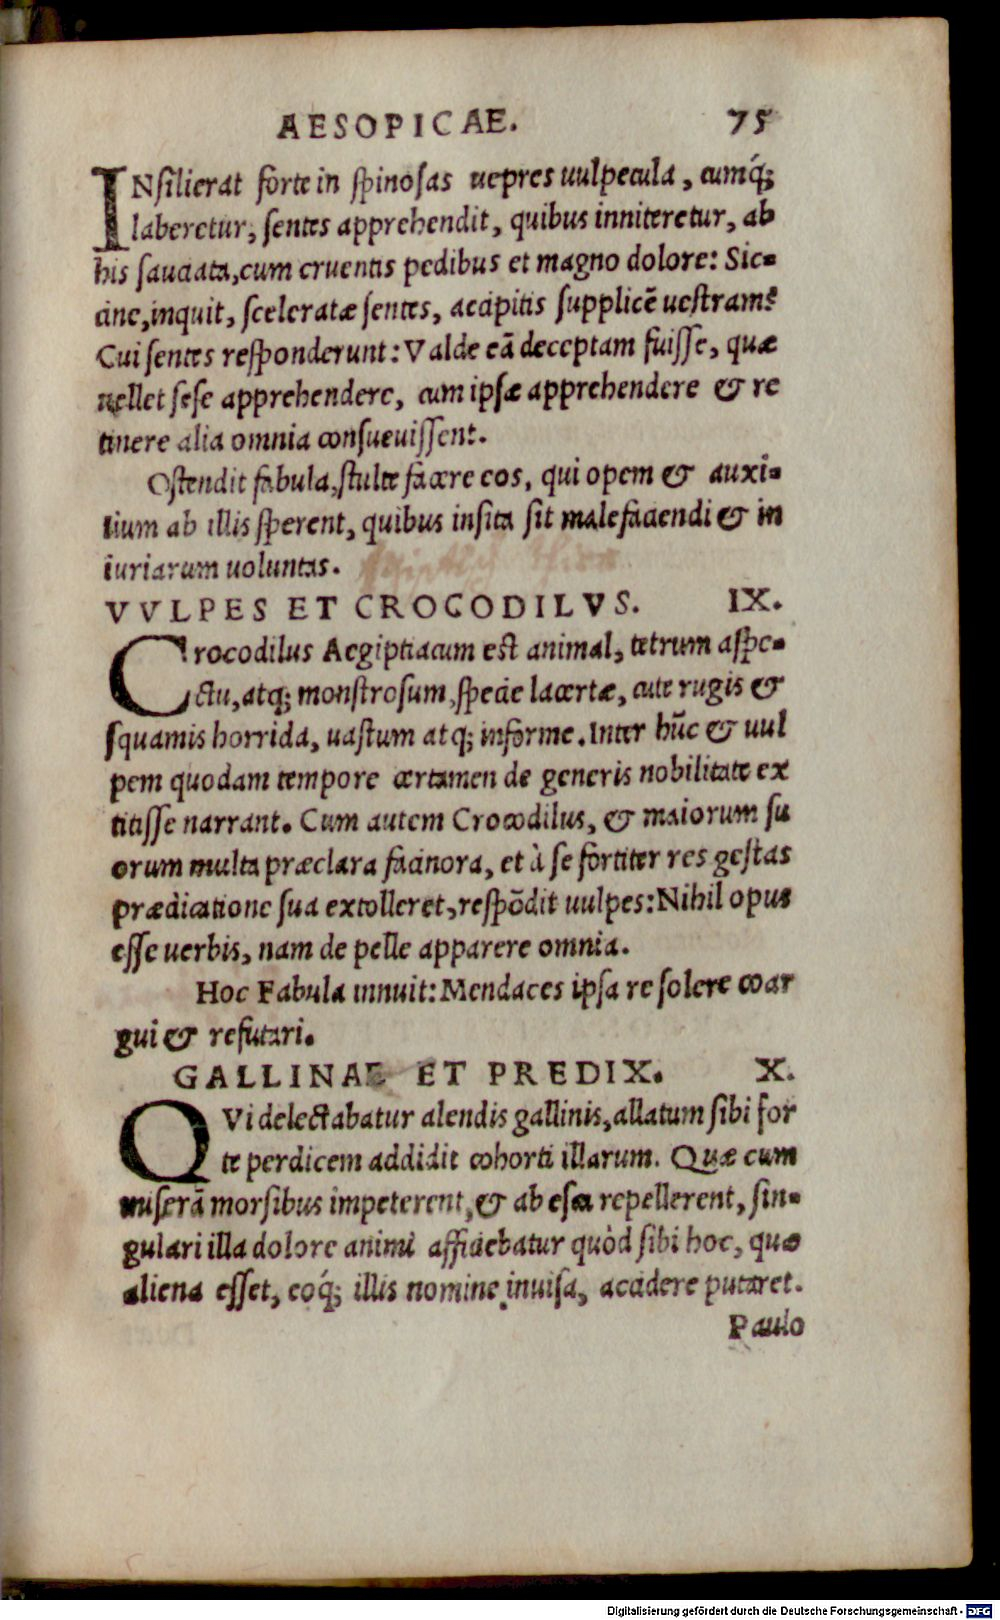 AESOPICAE. 75
INsilierat forte in spinosas uepres uulpecula, cumq́;
laberetur, sentes apprehendit, quibus inniteretur, ab
his sauciata, cum cruentis pedibus et magno dolore: Sic-
cine, inquit, sceleratæ sentes, accipitis supplicẽ uestram?
Cui sentes responderunt: Valde eã deceptam fuisse, quæ
uellet sese apprehendere, cum ipsæ apprehendere & re
tinere alia omnia consueuissent.
Ostendit fabula, stulte facere eos, qui opem & auxi-
lium ab illis sperent, quibus insita sit malefaciendi & in
iuriarum uoluntas.
VVLPES ET CROCODILVS. IX.
Crocodilus Aegiptiacum est animal, tetrum aspe-
ctu, atq; monstrosum, specie lacertæ, cute rugis &
squamis horrida, uastum atq; informe. Inter hũc & uul
pem quodam tempore certamen de generis nobilitate ex
titisse narrant. Cum autem Crocodilus, & maiorum su
orum multa præclara facinora, et à se fortiter res gestas
prædicatione sua extolleret, respõdit uulpes: Nihil opus
esse uerbis, nam de pelle apparere omnia.
Hoc Fabula innuit: Mendaces ipsa re solere coar
gui & refutari.
GALLINAE ET PREDIX. X.
QVi delectabatur alendis gallinis, allatum sibi for
te perdicem addidit cohorti illarum. Quæ cum
miserã morsibus impeterent, & ab esca repellerent, sin-
gulari illa dolore animi afficiebatur quòd sibi hoc, quæ
aliena esset, eoq́; illis nomine inuisa, accidere putaret.
Paulo
Digitalisierung gefördert durch die Deutsche Forschungsgemeinschaft - DFG